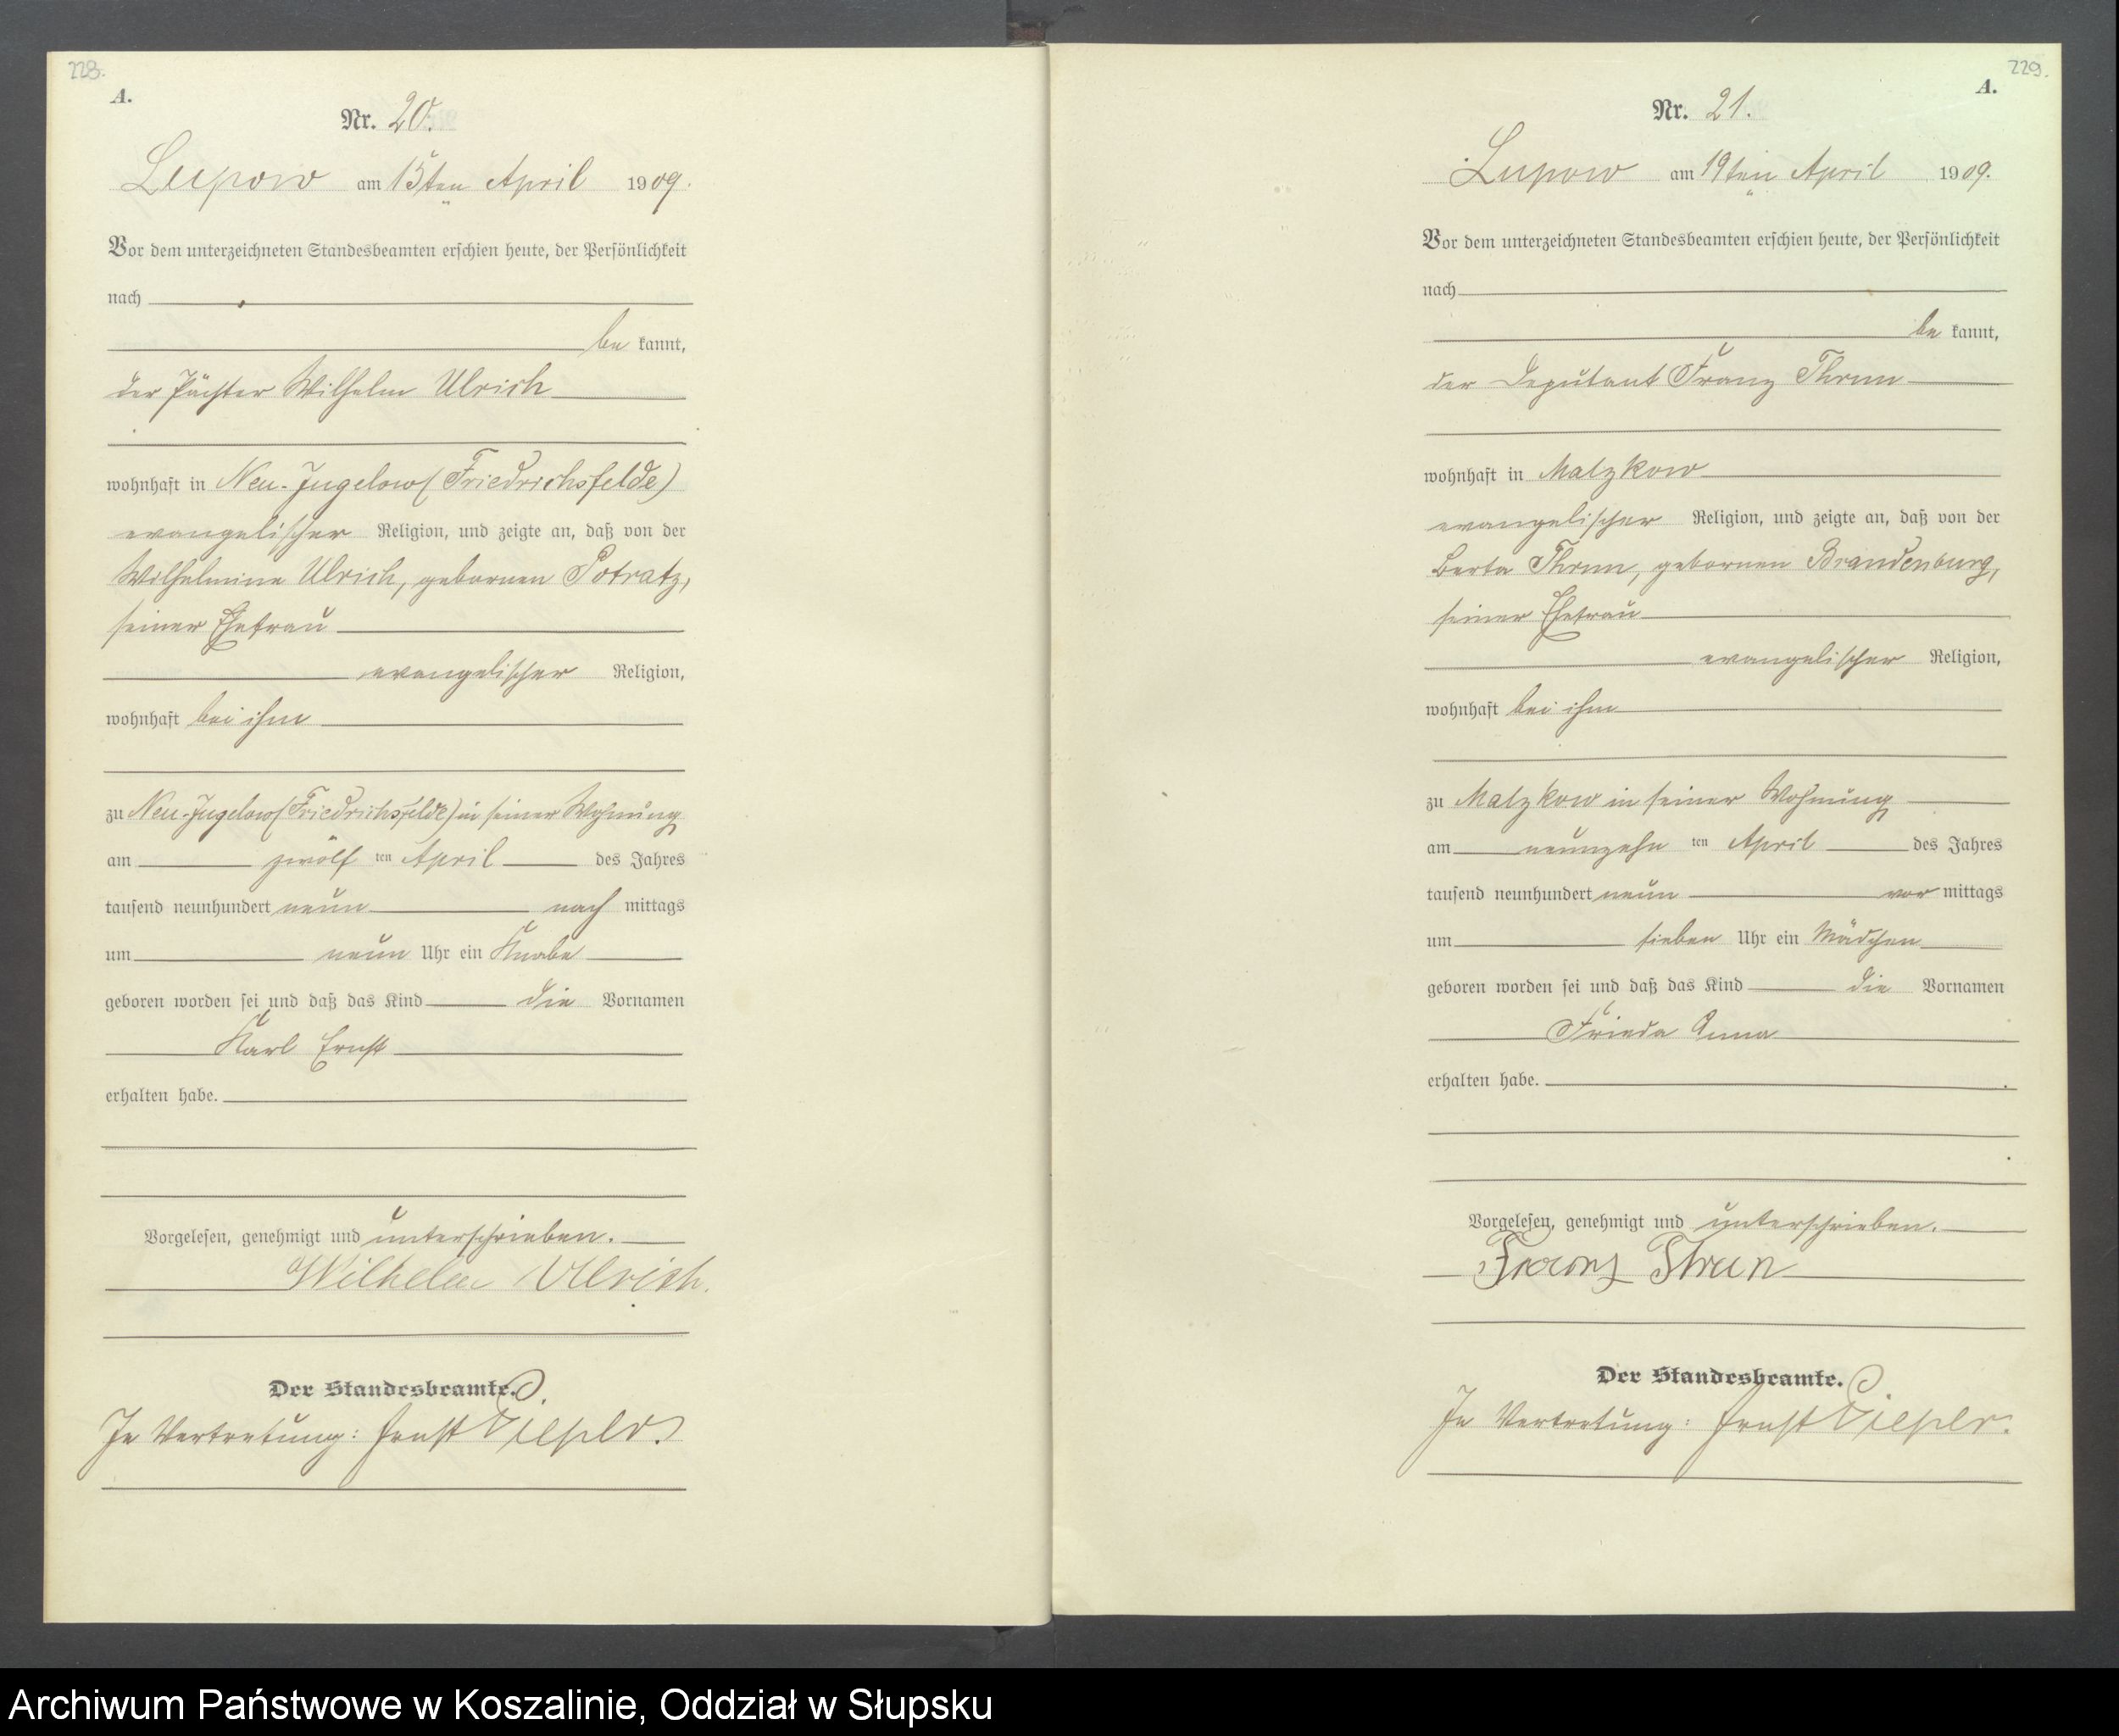 228.
A.
Nr. 20.
Lupow am 15ten April 1909.
Vor dem unterzeichneten Standesbeamten erschien heute, der Persönlichkeit
nach
be kannt,
der Pächter Wilhelm Ulrich
wohnhaft in Neu-Jugelow (Friedrichsfelde)
evangelischer Religion, und zeigte an, daß von der
Wilhelmine Ulrich, gebornen Potratz,
seiner Ehefrau
evangelischer Religion,
wohnhaft bei ihm
zu Neu-Jugelow (Friedrichsfelde) in seiner Wohnung
am zwölf ten April des Jahres
tausend neunhundert neun nach mittags
um neun Uhr ein Knabe
geboren worden sei und daß das Kind die Vornamen
Karl Ernst
erhalten habe.
Vorgelesen, genehmigt und unterschrieben.
Wilhelm Ulrich.
Der Standesbeamte.
In Vertretung: Ernst
229.
A.
Nr. 21.
Lupow am 19ten April 1909.
Vor dem unterzeichneten Standesbeamten erschien heute, der Persönlichkeit
nach
be kannt,
der Deputant Franz Thrun
wohnhaft in Malzkow
evangelischer Religion, und zeigte an, daß von der
Berta Thrun, gebornen Brandenburg,
seiner Ehefrau
evangelischer Religion,
wohnhaft bei ihm
zu Malzkow in seiner Wohnung
am neunzehn ten April des Jahres
tausend neunhundert neun vor mittags
um sieben Uhr ein Mädchen
geboren worden sei und daß das Kind die Vornamen
Frieda Anna
erhalten habe.
Vorgelesen, genehmigt und unterschrieben.
Franz Thrun
Der Standesbeamte.
In Vertretung: Ernst
Archiwum Państwowe w Koszalinie, Oddział w Słupsku